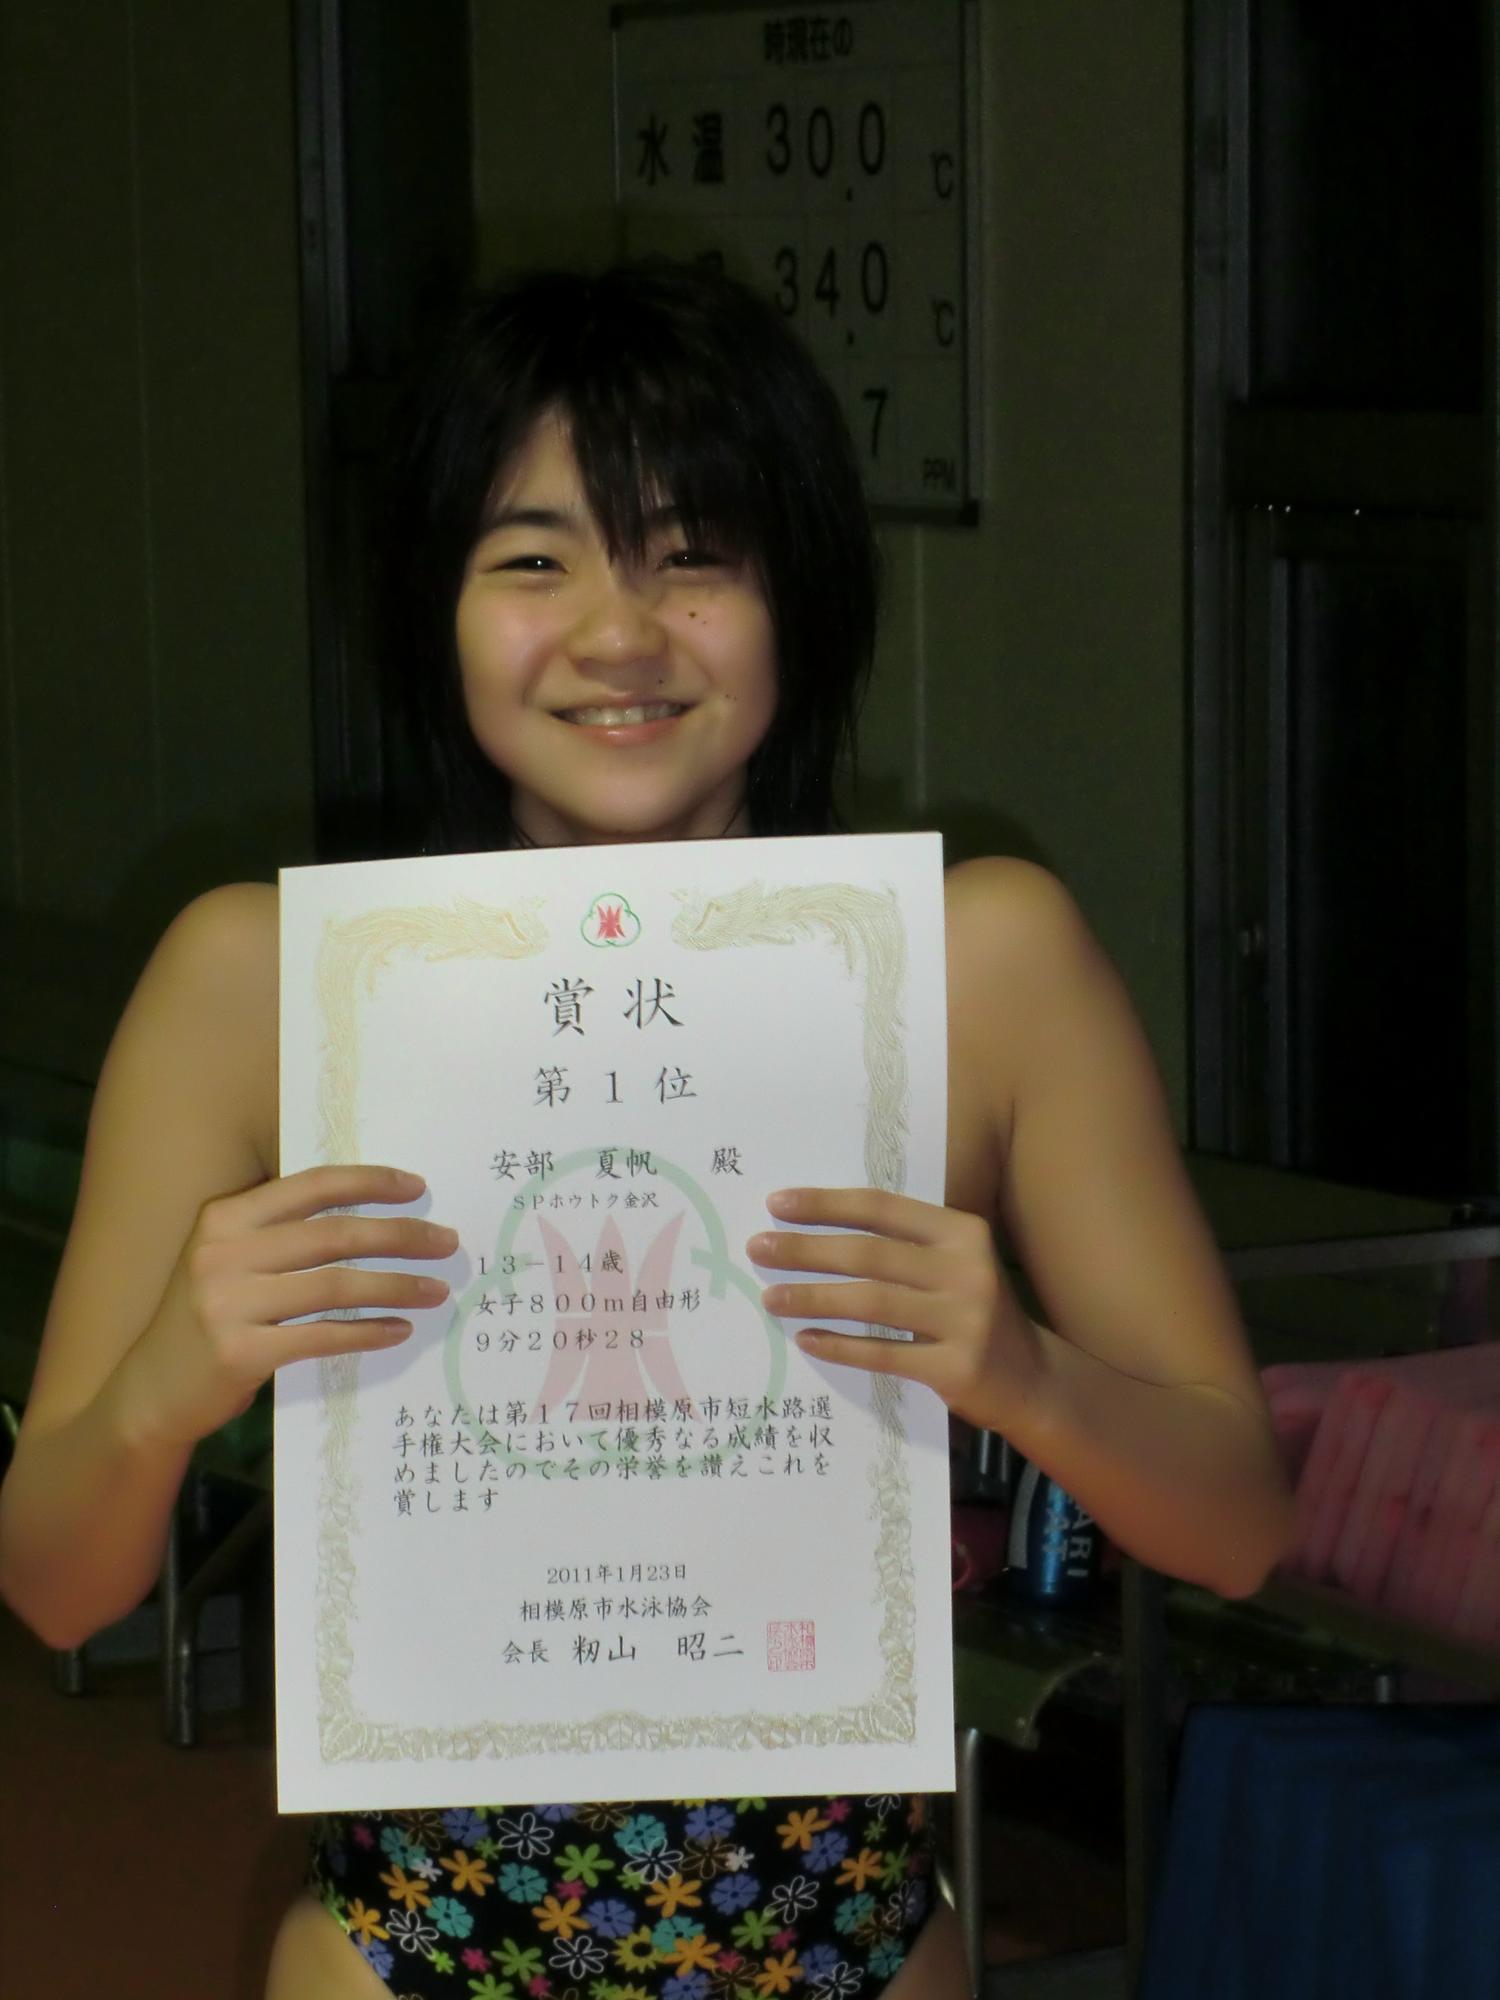 時現在の
水温 30.0 ℃
34.0 ℃
7
PPM
賞状
第1位
安部 夏帆 殿
SPホウトク金沢
13－14歳
女子800m自由形
9分20秒28
あなたは第17回相模原市短水路選
手権大会において優秀なる成績を収
めましたのでその栄誉を讃えこれを
賞します
2011年1月23日
相模原市水泳協会
会長 籾山 昭二